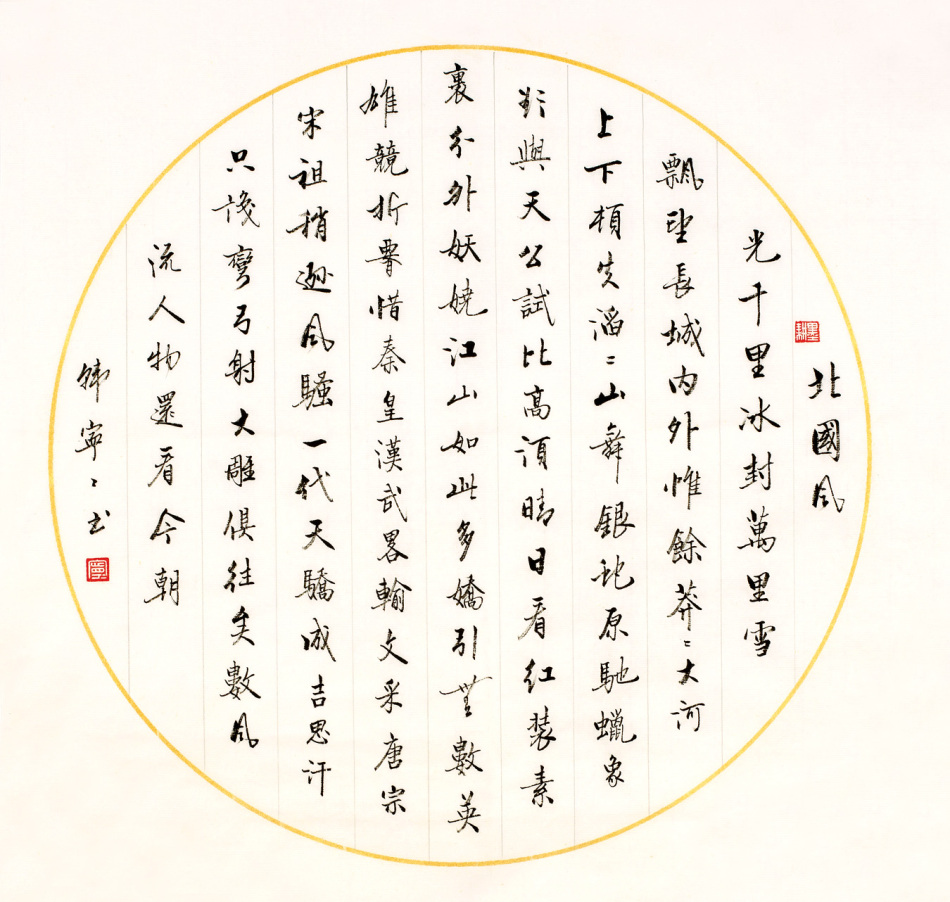 北國風
光千里冰封萬里雪
飄望長城內外惟餘莽〻大河
上下頓失滔〻山舞銀蛇原馳蠟象
欲與天公試比高須晴日看紅裝素
裹分外妖嬈江山如此多嬌引無數英
雄競折腰惜秦皇漢武畧輸文采唐宗
宋祖稍遜風騷一代天驕成吉思汗
只識彎弓射大雕俱往矣數風
流人物還看今朝
韓寧〻書
寧